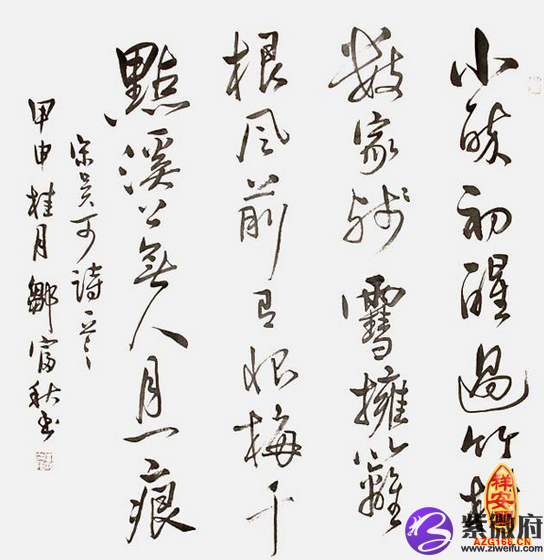 小醉初醒過竹村
數家殘雪擁籬
根風前有恨梅千
點溪上無人月一痕
宋吳可詩一
甲申桂月鄒富秋書
祥安
AZG168.CN
紫微府
https://www.ziweifu.com/